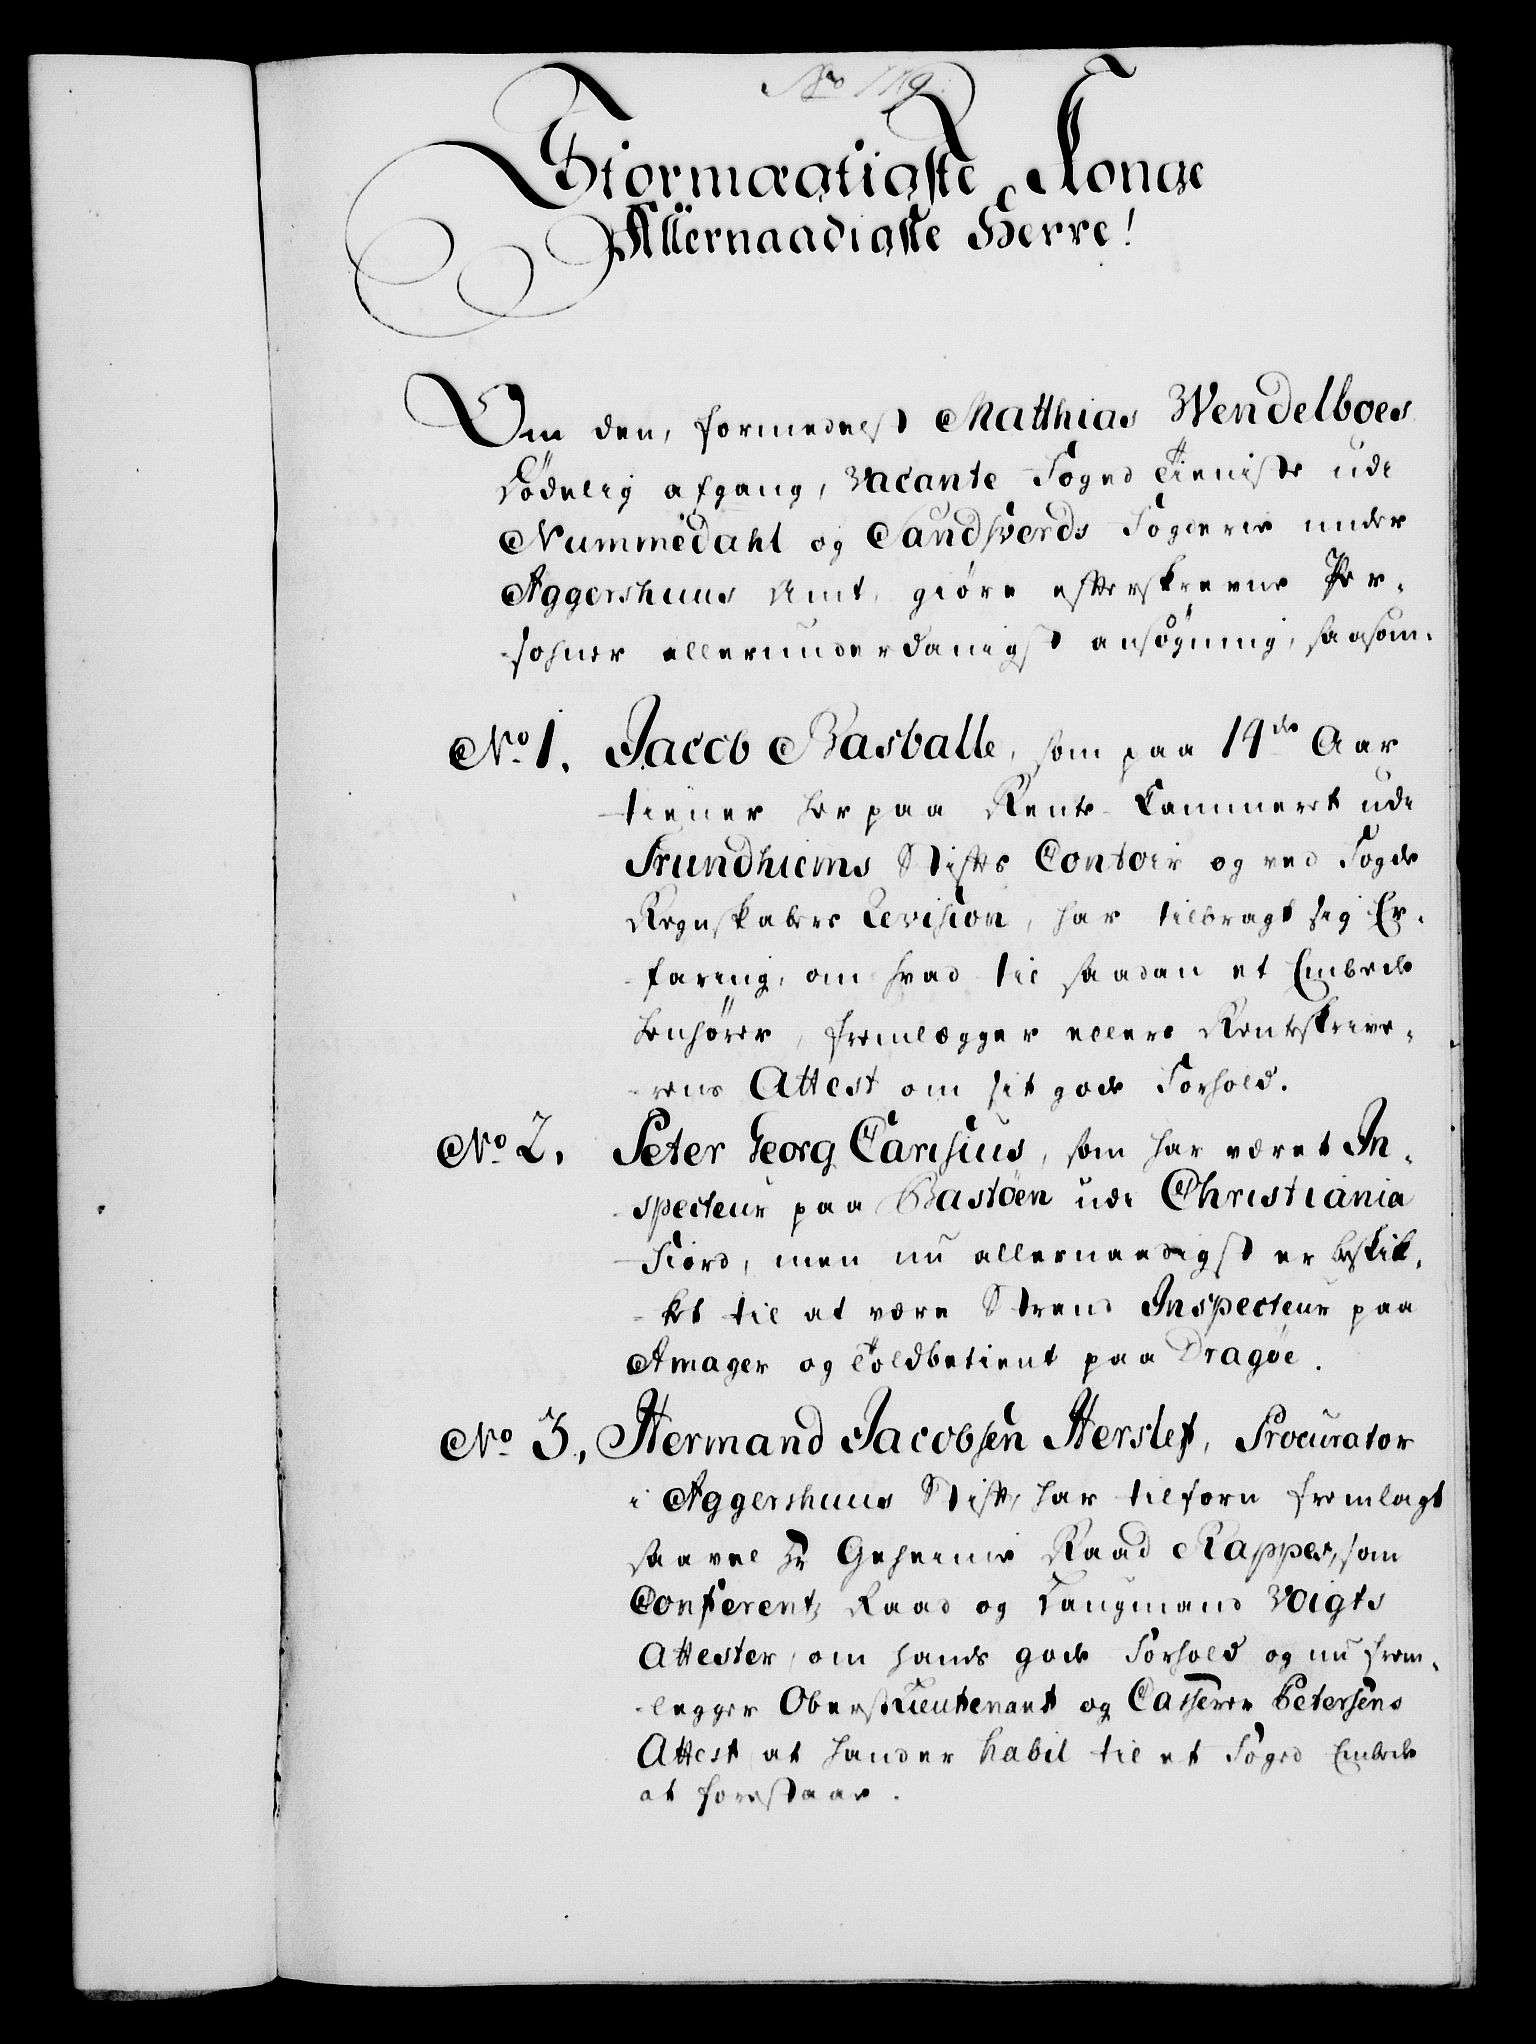 No 119.
Stormægtigste Konge
Allernaadigste Herre!
Om den, formedelst Matthias Wendelboes
Dödelig afgang, vacante Foged Tieniste udi
Nummedahl og Sandsverds Fogderie under
Aggershuus Amt, giöre efterskrevne Per-
sohner allerunderdanigst ansögning, saasom.
No 1. Jacob Basballe, som paa 14de Aar
tiener her paa Rente-Cammeret udi
Trundhiems Stifts Contoir og ved Fogde
Regnskabers Revision, har tilbragt sig Er-
faring, om hvad til saadan et Embede
henhörer, fremlægger ellers Renteskrive-
rens Attest om sit gode Forhold.
No 2. Peter Georg Carisius, som har været In-
specteur paa Bastöen udi Christiania
Fiord, men nu allernaadigst er beskik-
ket til at være Strand Inspecteur paa
Amager og Toldbetient paa Dragöe.
No 3. Hermand Jacobsen Herslef, Procurator
i Aggershuus Stift, har tilforn fremlagt
saavel Hr Geheime Raad Rappes, som
Conferentz Raad og Laugmand Voigts
Attester, om hands gode Forhold og nu frem-
legger Oberstlieutenant og Casserer Petersens
Attest, at hand er habil til et Foged Embede
at forestaae.